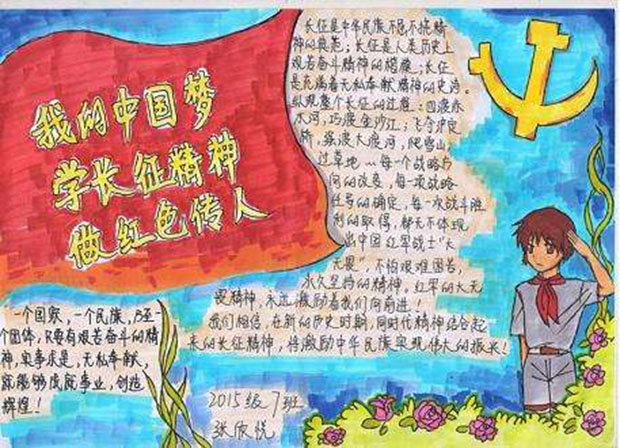 我的中国梦
学长征精神
做红色传人
长征是中华民族不屈不挠精
神的典范；长征是人类历史上
艰苦奋斗精神的楷模；长征
是充满着无私奉献精神的史诗。
纵观整个长征的过程：四渡赤
水河，巧渡金沙江；飞夺泸定
桥，强渡大渡河，爬雪山，
过草地……每一个战略方
向的改变，每一项战略
任务的确定，每一次战斗胜
利的取得，都无不体现
出中国红军战士"大
无畏"，不怕艰难困苦，
永久坚持的精神，红军的大无
畏精神，永远激励着我们向前进！
我们相信，在新的历史时期，同时代精神结合起
来的长征精神，将激励中华民族实现伟大的振兴！
一个国家，一个民族，乃至一
个团体，只要有艰苦奋斗的精
神，实事求是，无私奉献，
就能够成就事业，创造
辉煌！
2015级7班
张欣悦